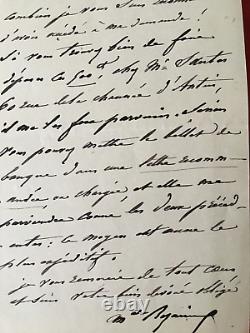 combien je vous suis
d'avoir accédé à ma demande !
Si vous trouvez bien de faire
déposer ces 600 f, chez Mr Santos
60 rue de la chaussée d'Antin,
il me les fera parvenir. Sinon
vous pouvez mettre le billet de
banque dans une lettre recomm-
andée, ou chargée et elle me
parviendra comme les deux précéd-
entes : ce moyen est même le
plus expéditif.
Je vous remercie de tout cœur
et suis votre bien dévoué obligé